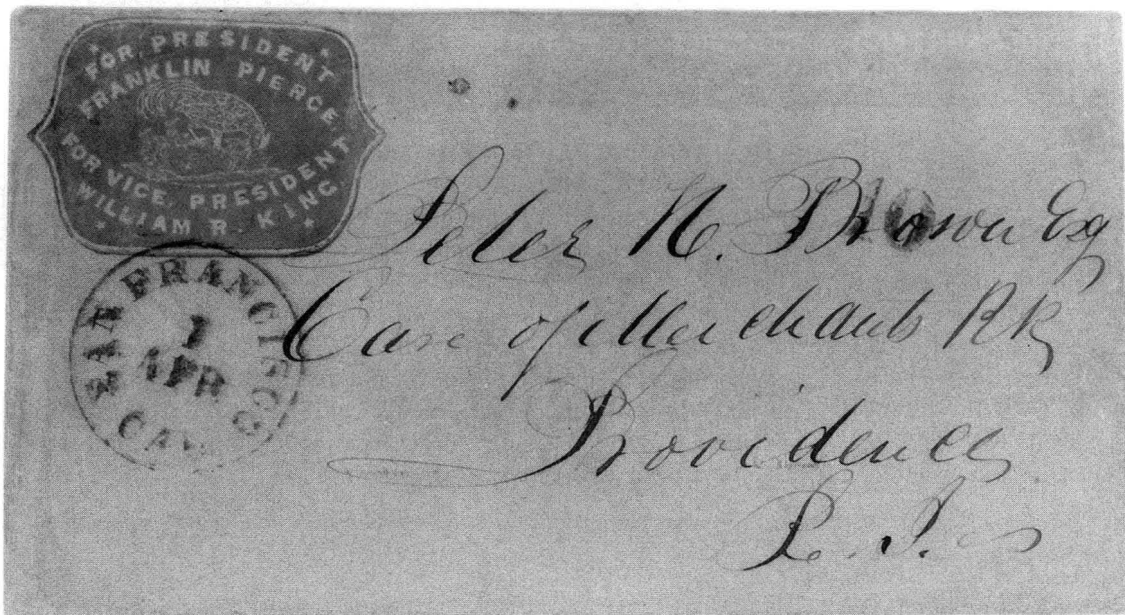 FOR PRESIDENT
FRANKLIN PIERCE,
FOR VICE. PRESIDENT
WILLIAM R. KING.
SAN FRANCISCO
1
APR
CAL.
10
Peter H. Brown Esq
Care of Merchants Bk
Providence
R. I.